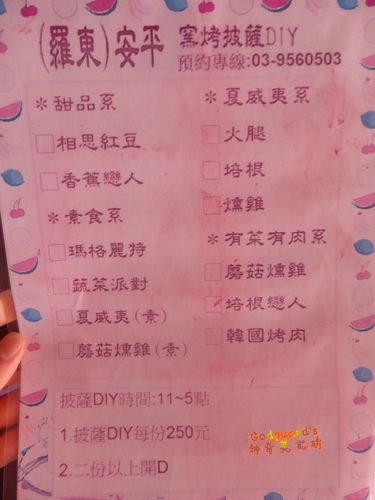 (羅東)安平 窯烤披薩DIY
預約專線:03-9560503
＊甜品系
□相思紅豆
□香蕉戀人
＊素食系
□瑪格麗特
□蔬菜派對
□夏威夷(素)
□蘑菇燻雞(素)
＊夏威夷系
□火腿
□培根
□燻雞
＊有菜有肉系
□蘑菇燻雞
□培根戀人
□韓國烤肉
披薩DIY時間:11~5點
1.披薩DIY每份250元
2.二份以上開D